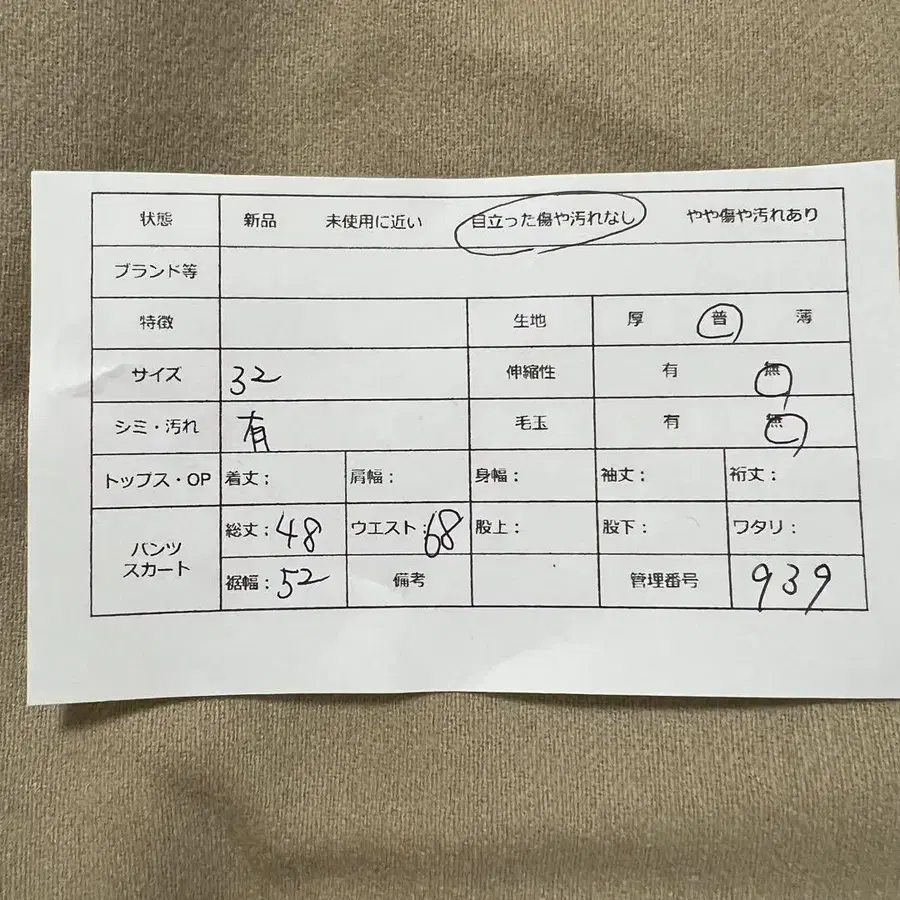 状態 新品 未使用に近い 目立った傷や汚れなし やや傷や汚れあり
ブランド等
特徴 生地 厚 普 薄
サイズ 32 伸縮性 有 無
シミ・汚れ 有 毛玉 有 無
トップス・OP 着丈: 肩幅: 身幅: 袖丈: 裄丈:
パンツ スカート 総丈:48 ウエスト:68 股上: 股下: ワタリ:
裾幅:52 備考 管理番号 939